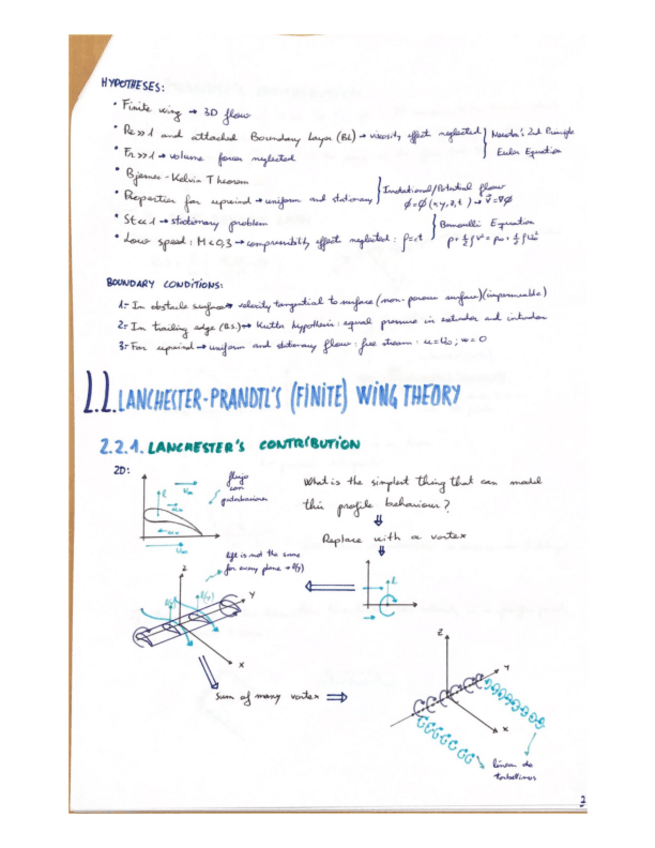 HYPOTHESES:
• Finite wing → 3D flow
• Re>>1 and attached Boundary Layer (BL) → viscosity effect neglected } Newton's 2nd Principle
Euler Equation
• Fr>>1 → volume forces neglected
• Bjerness-Kelvin Theorem
• Properties far upwind → uniform and stationary } Irrotational/Potential flow
Φ=Φ(x,y,z,t) → V̄=∇Φ
• St<<1 → stationary problem
• Low speed: M<0,3 → compressibility effect neglected: ρ=ct } Bernoulli Equation
p+½ρV²=p∞+½ρU∞²
BOUNDARY CONDITIONS:
1= In obstacle surface → velocity tangential to surface (non-porous surface)(impermeable)
2= In trailing edge (B.S.) → Kutta hypothesis: equal pressure in extrados and intrados
3= Far upwind → uniform and stationary flow: free stream: u=U∞; w=0
2.2. LANCHESTER-PRANDTL'S (FINITE) WING THEORY
2.2.1. LANCHESTER'S CONTRIBUTION
2D:
flujo
con
perturbaciones
l
U∞
U∞
What is the simplest thing that can model
this profile behaviour?
Replace with a vortex
lift is not the same
for every plane → l(y)
l
z
l(y)
l(y)
Y
X
Sum of many vortex
Z
Y
X
línea de
torbellinos